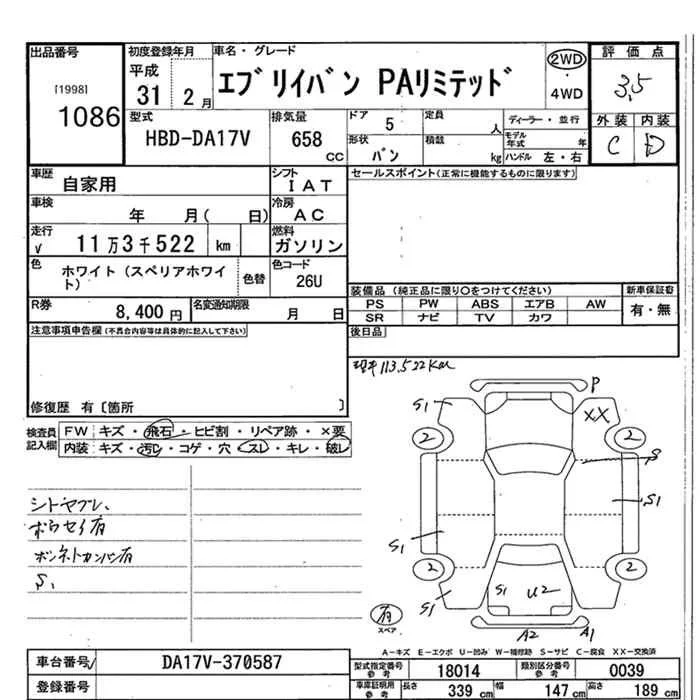 出品番号
[1998]
1086
初度登録年月
平成
31 2月
車名・グレード
エブリイバン PAリミテッド
2WD
・
4WD
評価点
3.5
外装 内装
C D
型式
HBD-DA17V
排気量
658 cc
ドア 5
形状 バン
定員 人
積載 kg
ディーラー・並行
モデル年式 年
ハンドル 左・右
車歴 自家用
シフト IAT
車検 年 月( 日)
冷房 AC
走行 √ 11万3千522 km
燃料 ガソリン
色 ホワイト(スペリアホワイト)
色替
色コード 26U
R券 8,400円
名変通知期限 月 日
セールスポイント(正常に機能するものに限ります)
装備品 (純正品に限り○をつけてください)
PS PW ABS エアB AW
SR ナビ TV カワ
新車保証書
有・無
後日品
注意事項申告欄(不具合内容等は具体的に記入して下さい)
修復歴 有〔箇所 〕
検査員記入欄
FW キズ・飛石・ヒビ割・リペア跡・×要
内装 キズ・汚レ・コゲ・穴・スレ・キレ・破レ
シトヤブレ、
ホウセイ有
ボンネットカンバン有
S1
メーター 113,522Km
P
S1
XX
2
2
P
S1
S1
2
2
S1
S1
U2
A2
A1
有
スペア
A-キズ E-エクボ U-凹み W-補修跡 S-サビ C-腐食 XX-交換済
車台番号√ DA17V-370587
登録番号
型式指定番号参考 18014
類別区分番号参考 0039
車庫証明用参考
長さ 339cm
幅 147cm
高さ 189cm